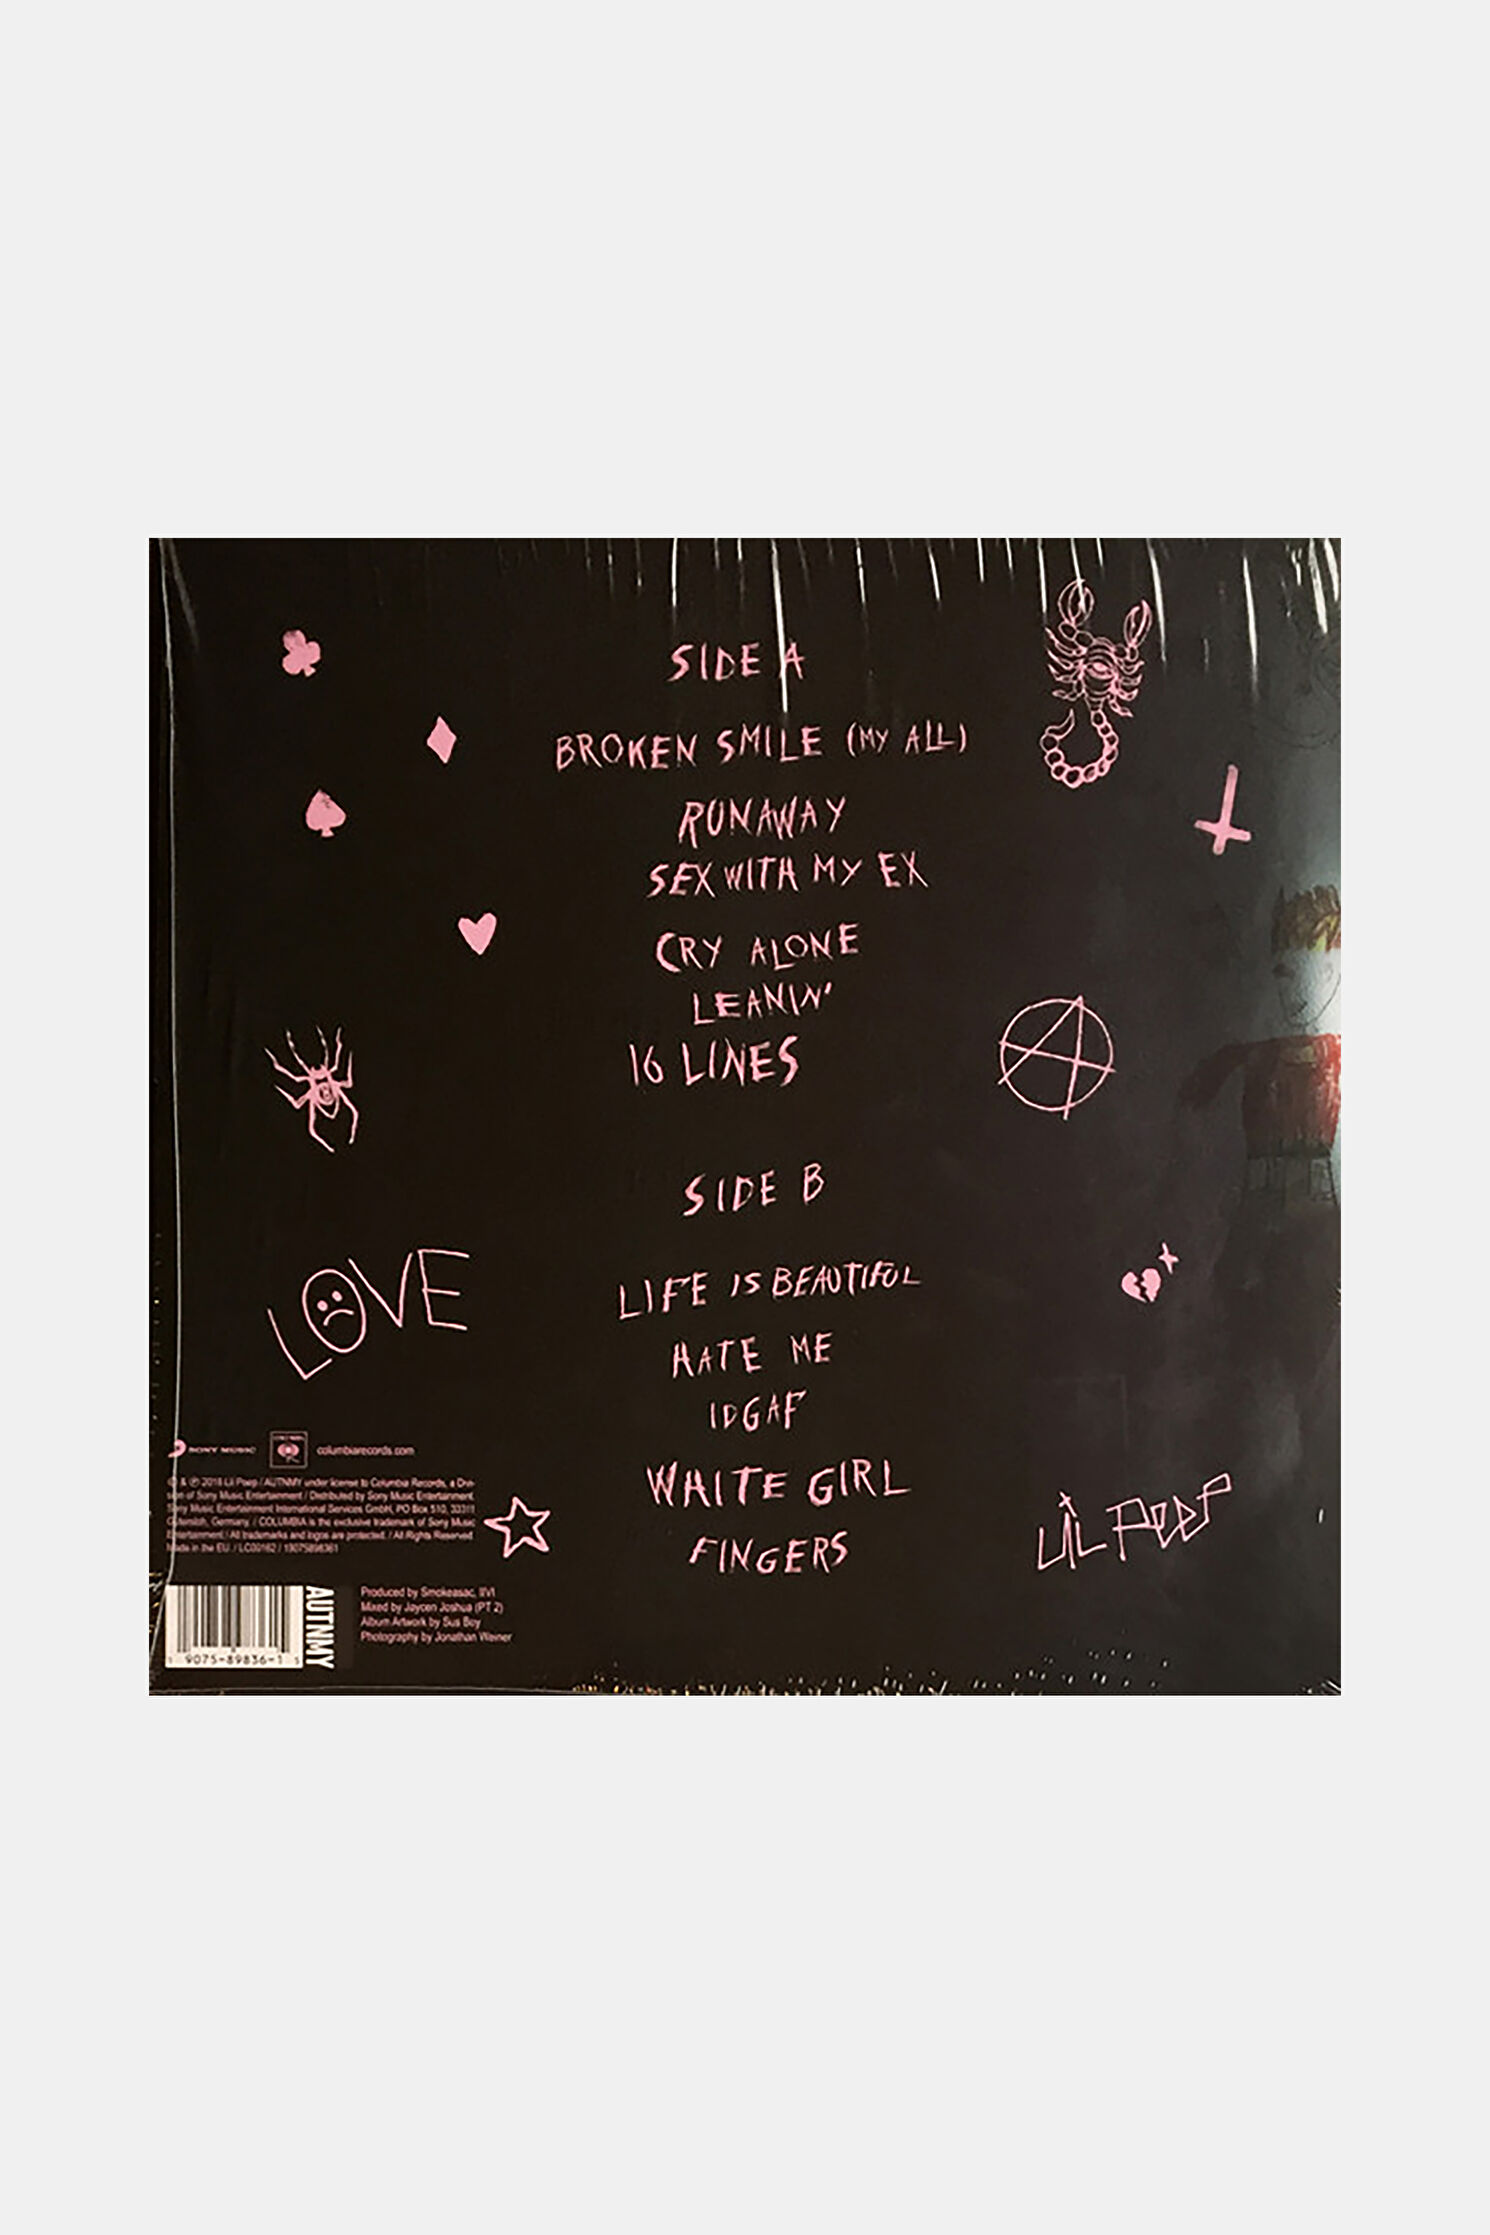 SIDE A
BROKEN SMILE (MY ALL)
RUNAWAY
SEX WITH MY EX
CRY ALONE
LEANIN'
16 LINES
SIDE B
LIFE IS BEAUTIFUL
HATE ME
IDGAF
WHITE GIRL
FINGERS
LOVE
LIL PEEP
SONY MUSIC
columbiarecords.com
© & ℗ 2018 Lil Peep / AUTNMY under license to Columbia Records, a Divi-
sion of Sony Music Entertainment / Distributed by Sony Music Entertainment.
Sony Music Entertainment International Services GmbH, PO Box 510, 33311
Gütersloh, Germany. / COLUMBIA is the exclusive trademark of Sony Music
Entertainment / All trademarks and logos are protected. / All Rights Reserved
Made in the EU. / LC00162 / 19075898361
AUTNMY
Produced by Smokeasac, IIVI
Mixed by Jaycen Joshua (PT 2)
Album Artwork by Sus Boy
Photography by Jonathan Weiner
1 9075-89836-1 5